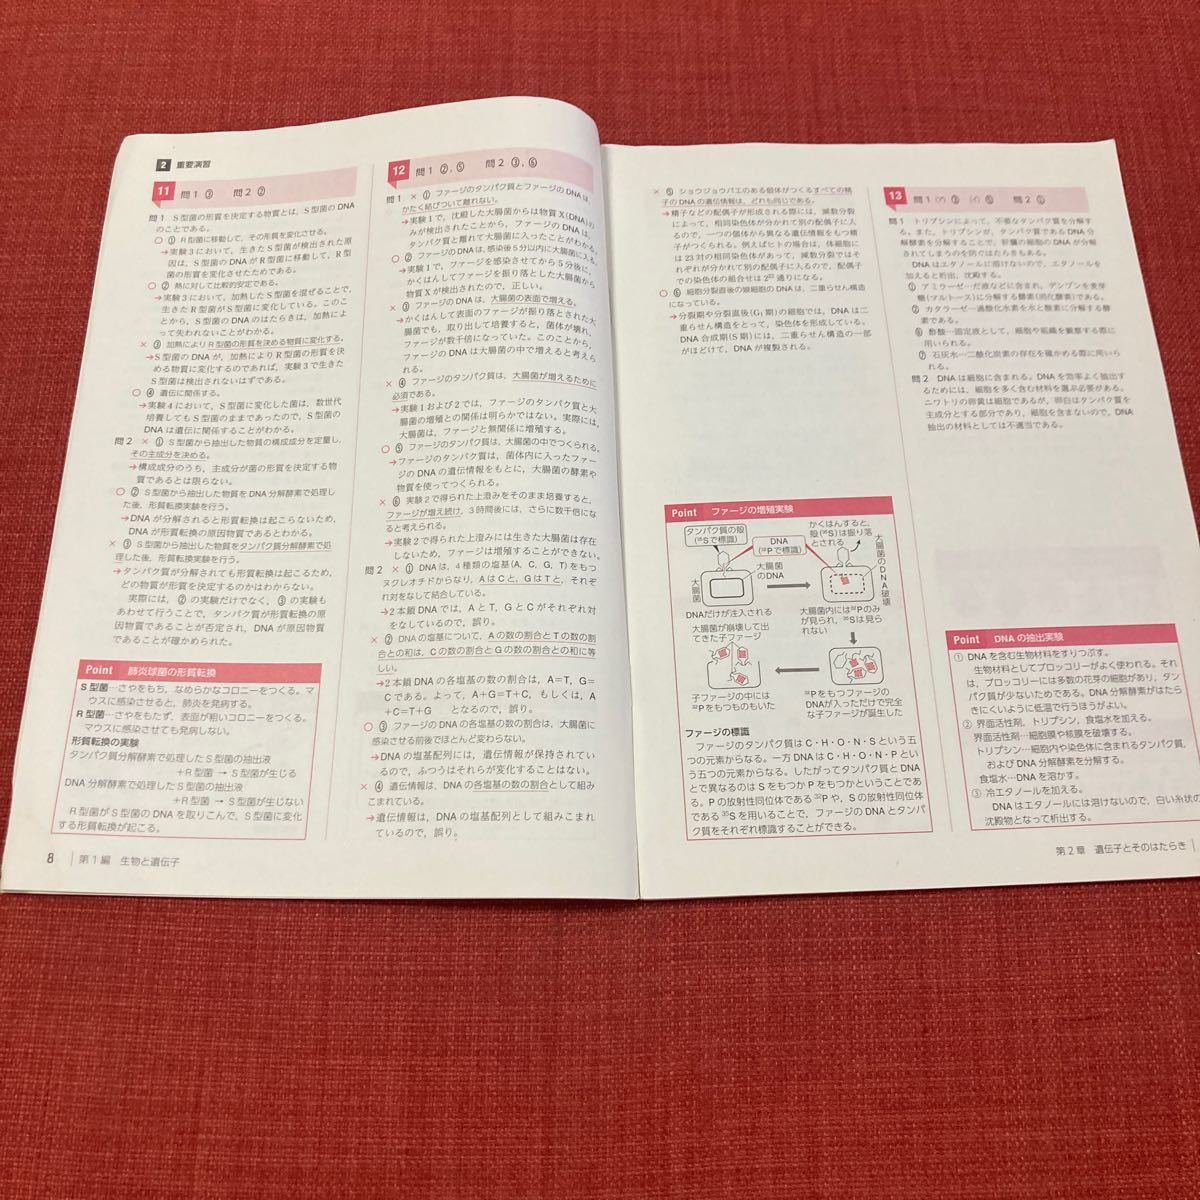 2 重要演習
11 問1 ③ 問2 ②
問1 S型菌の形質を決定する物質とは，S型菌のDNA
のことである。
○ ① R型菌に移動して，その形質を変化させる。
→実験3において，生きたS型菌が検出された原
因は，S型菌のDNAがR型菌に移動して，R型
菌の形質を変化させたためである。
○ ② 熱に対して比較的安定である。
→実験3において，加熱したS型菌を混ぜることで，
生きたR型菌がS型菌に変化している。このこ
とから，S型菌のDNAのはたらきは，加熱によ
って失われないことがわかる。
× ③ 加熱によりR型菌の形質を決める物質に変化する。
→S型菌のDNAが，加熱によりR型菌の形質を決
める物質に変化するのであれば，実験3で生きた
S型菌は検出されないはずである。
○ ④ 遺伝に関係する。
→実験4において，S型菌に変化した菌は，数世代
培養してもS型菌のままであったので，S型菌の
DNAは遺伝に関係することがわかる。
問2 × ① S型菌から抽出した物質の構成成分を定量し，
その主成分を決める。
→構成成分のうち，主成分が菌の形質を決定する物
質であるとは限らない。
○ ② S型菌から抽出した物質をDNA分解酵素で処理し
た後，形質転換実験を行う。
→DNAが分解されると形質転換は起こらないため，
DNAが形質転換の原因物質であるとわかる。
× ③ S型菌から抽出した物質をタンパク質分解酵素で処
理した後，形質転換実験を行う。
→タンパク質が分解されても形質転換は起こるため，
どの物質が形質を決定するのかはわからない。
実際には，②の実験だけでなく，③の実験も
あわせて行うことで，タンパク質が形質転換の原
因物質であることが否定され，DNAが原因物質
であることが確かめられた。
Point 肺炎球菌の形質転換
S型菌…さやをもち，なめらかなコロニーをつくる。マ
ウスに感染させると，肺炎を発病する。
R型菌…さやをもたず，表面が粗いコロニーをつくる。
マウスに感染させても発病しない。
形質転換の実験
タンパク質分解酵素で処理したS型菌の抽出液
+R型菌 → S型菌が生じる
DNA分解酵素で処理したS型菌の抽出液
+R型菌 → S型菌が生じない
R型菌がS型菌のDNAを取りこんで，S型菌に変化
する形質転換が起こる。
8 第1編 生物と遺伝子
12 問1 ②，⑤ 問2 ③，⑥
問1 × ① ファージのタンパク質とファージのDNAは，
かたく結びついて離れない。
→実験1で，沈殿した大腸菌からは物質X(DNA)の
みが検出されたことから，ファージのDNAは，
タンパク質と離れて大腸菌に入ったことがわかる。
○ ② ファージのDNAは，感染後5分以内に大腸菌に入る。
→実験1で，ファージを感染させてから5分後に，
かくはんしてファージを振り落とした大腸菌から
物質Xが検出されたので，正しい。
× ③ ファージのDNAは，大腸菌の表面で増える。
→かくはんして表面のファージが振り落とされた大
腸菌でも，取り出して培養すると，菌体が壊れ，
ファージが数千倍になっていた。このことから，
ファージのDNAは大腸菌の中で増えると考えら
れる。
× ④ ファージのタンパク質は，大腸菌が増えるために
必須である。
→実験1および2では，ファージのタンパク質と大
腸菌の増殖との関係は明らかではない。実際には，
大腸菌は，ファージと無関係に増殖する。
○ ⑤ ファージのタンパク質は，大腸菌の中でつくられる。
→ファージのタンパク質は，菌体内に入ったファー
ジのDNAの遺伝情報をもとに，大腸菌の酵素や
物質を使ってつくられる。
× ⑥ 実験2で得られた上澄みをそのまま培養すると，
ファージが増え続け，3時間後には，さらに数千倍にな
ると考えられる。
→実験2で得られた上澄みには生きた大腸菌は存在
しないため，ファージは増殖することができない。
問2 × ① DNAは，4種類の塩基(A, C, G, T)をもつ
ヌクレオチドからなり，AはCと，GはTと，それぞ
れ対をなして結合している。
→2本鎖DNAでは，AとT，GとCがそれぞれ対
をなしているので，誤り。
× ② DNAの塩基について，Aの数の割合とTの数の割
合との和は，Cの数の割合とGの数の割合との和に等
しい。
→2本鎖DNAの各塩基の数の割合は，A=T，G=
Cである。よって，A+G=T+C，もしくは，A
+C=T+G となるので，誤り。
○ ③ ファージのDNAの各塩基の数の割合は，大腸菌に
感染させる前後でほとんど変わらない。
→DNAの塩基配列には，遺伝情報が保持されてい
るので，ふつうはそれらが変化することはない。
× ④ 遺伝情報は，DNAの各塩基の数の割合として組み
こまれている。
→遺伝情報は，DNAの塩基配列として組みこまれ
ているので，誤り。
× ⑤ ショウジョウバエのある個体がつくるすべての精
子のDNAの遺伝情報は，どれも同じである。
→精子などの配偶子が形成される際には，減数分裂
によって，相同染色体が分かれて別の配偶子に入
るので，一つの個体から異なる遺伝情報をもつ精
子がつくられる。例えばヒトの場合は，体細胞に
は23対の相同染色体があって，減数分裂ではそ
れぞれが分かれて別の配偶子に入るので，配偶子
での染色体の組合せは2²³通りになる。
○ ⑥ 細胞分裂直後の娘細胞のDNAは，二重らせん構造
になっている。
→分裂期や分裂直後(G₁期)の細胞では，DNAは二
重らせん構造をとって，染色体を形成している。
DNA合成期(S期)には，二重らせん構造の一部
がほどけて，DNAが複製される。
Point ファージの増殖実験
タンパク質の殻
(³⁵Sで標識)
DNA
(³²Pで標識)
かくはんすると，
殻(³⁵S)は振り落
とされる
大腸菌
大腸菌
のDNA
大腸菌のDNA破壊
DNAだけが注入される
大腸菌内には³²Pのみ
が見られ，³⁵Sは見ら
れない
大腸菌が崩壊して出
てきた子ファージ
子ファージの中には
³²Pをもつものもいた
³²Pをもつファージの
DNAが入っただけで完全
な子ファージが誕生した
ファージの標識
ファージのタンパク質はC・H・O・N・Sという五
つの元素からなる。一方DNAはC・H・O・N・Pとい
う五つの元素からなる。したがってタンパク質とDNA
とで異なるのはSをもつかPをもつかということであ
る。Pの放射性同位体である³²Pや，Sの放射性同位体
である³⁵Sを用いることで，ファージのDNAとタンパ
ク質をそれぞれ標識することができる。
13 問1 (ア) ③ (イ) ⑤ 問2 ⑤
問1 トリプシンによって，不要なタンパク質を分解す
る。また，トリプシンが，タンパク質であるDNA分
解酵素を分解することで，肝臓の細胞のDNAが分解
されてしまうのを防ぐはたらきもある。
DNAはエタノールに溶けないので，エタノールを
加えると析出，沈殿する。
① アミラーゼ…だ液などに含まれ，デンプンを麦芽
糖(マルトース)に分解する酵素(消化酵素)である。
② カタラーゼ…過酸化水素を水と酸素に分解する酵
素である。
⑥ 酢酸…固定液として，細胞や組織を観察する際に
用いられる。
⑦ 石灰水…二酸化炭素の存在を確かめる際に用いら
れる。
問2 DNAは細胞に含まれる。DNAを効率よく抽出す
るためには，細胞を多く含む材料を選ぶ必要がある。
ニワトリの卵黄は細胞であるが，卵白はタンパク質を
主成分とする部分であり，細胞を含まないので，DNA
抽出の材料としては不適当である。
Point DNAの抽出実験
① DNAを含む生物材料をすりつぶす。
生物材料としてブロッコリーがよく使われる。それ
は，ブロッコリーには多数の花芽の細胞があり，タン
パク質が少ないためである。DNA分解酵素がはたら
きにくいように低温で行うほうがよい。
② 界面活性剤，トリプシン，食塩水を加える。
界面活性剤…細胞膜や核膜を破壊する。
トリプシン…細胞内や染色体に含まれるタンパク質，
およびDNA分解酵素を分解する。
食塩水…DNAを溶かす。
③ 冷エタノールを加える。
DNAはエタノールには溶けないので，白い糸状の
沈殿物となって析出する。
第2章 遺伝子とそのはたらき